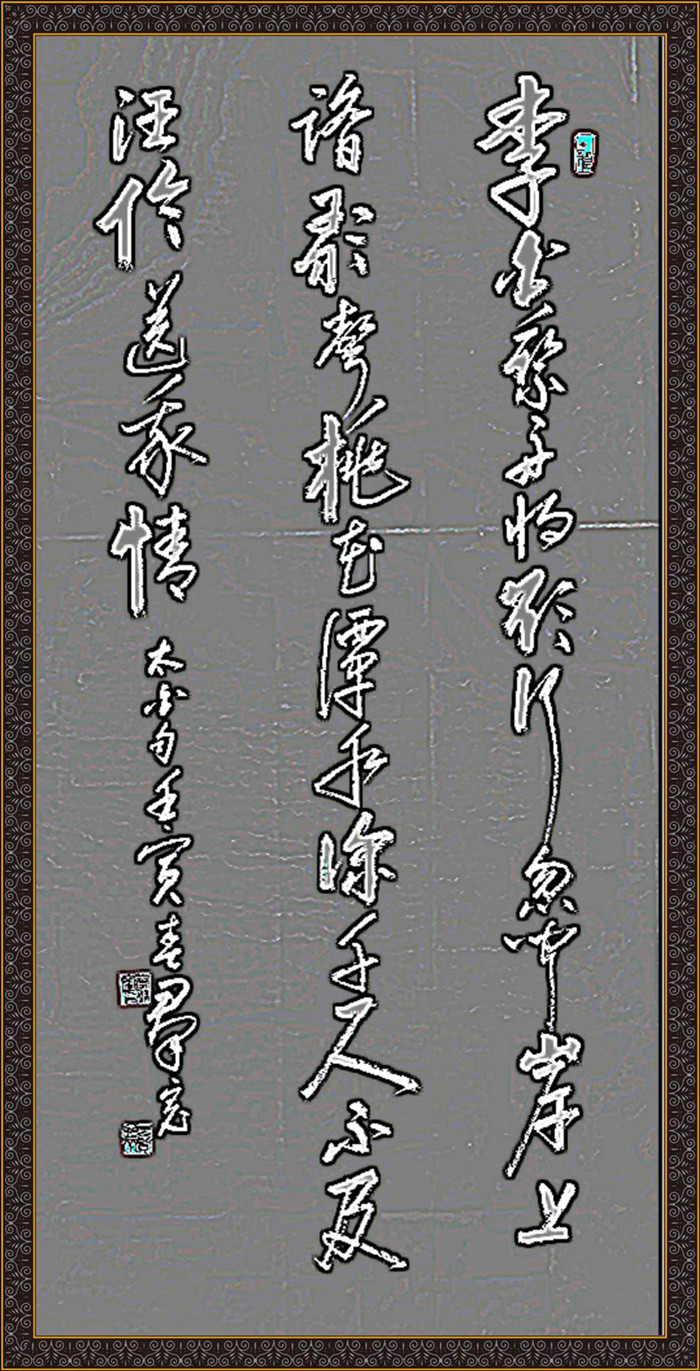 李白乘舟將欲行忽聞岸上
踏歌聲桃花潭水深千尺不及
汪倫送我情 太白句 壬寅春